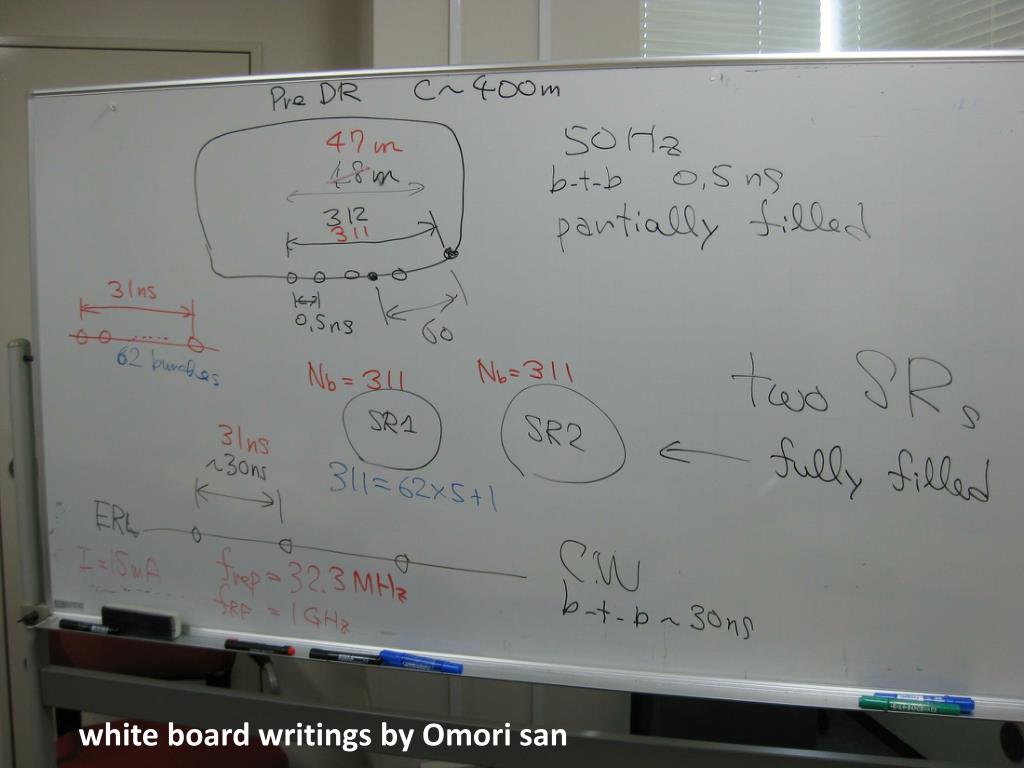 Pre DR C~400m
47m
48m
312
311
0,5ns
60
50Hz
b-t-b 0,5ns
partially filled
31ns
62 bunches
Nb=311
SR1
Nb=311
SR2
311=62×5+1
two SRs
fully filled
31ns
~30ns
ERL
I=15mA
frep=32.3MHz
fRF=1GHz
CW
b-t-b~30ns
white board writings by Omori san